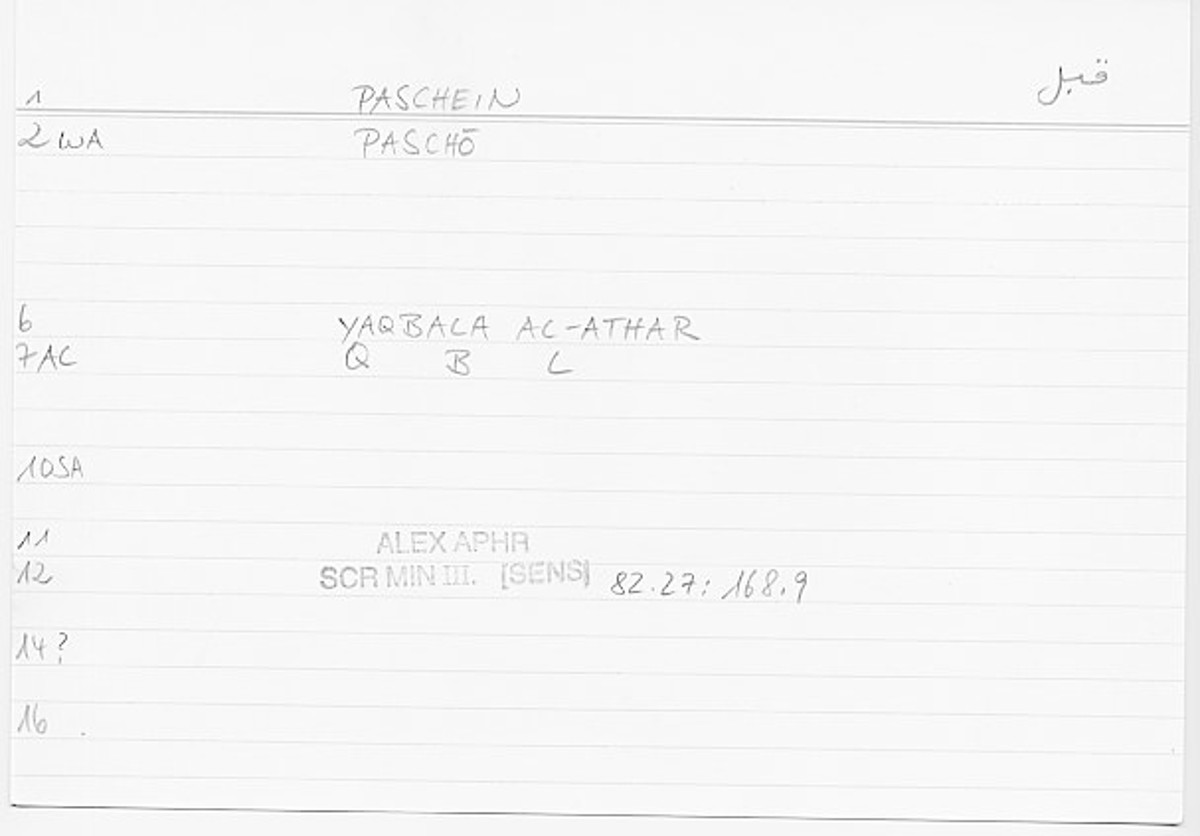 قبل
1 PASCHEIN
2 WA PASCHŌ
6 YAQBALA AL-ATHAR
7 AL Q B L
10 SA
11 ALEX APHR
12 SCR MIN III. [SENS] 82.27: 168.9
14 ?
16 .